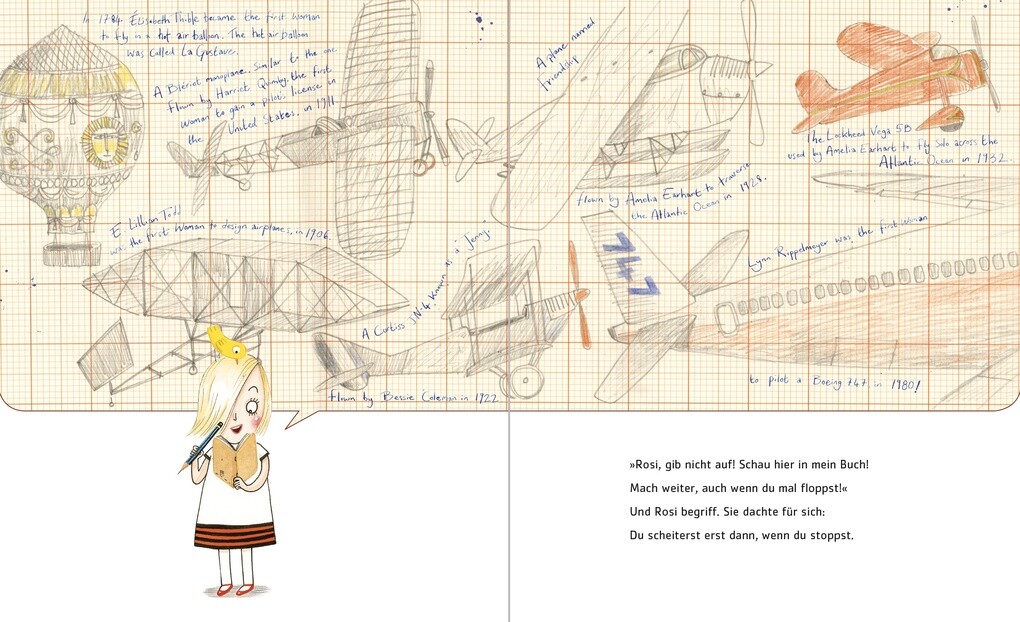 In 1784 Élisabeth Thible became the first woman
to fly in a hot air balloon. The hot air balloon
was called La Gustave.
A Blériot monoplane, similar to the one
flown by Harriet Quimby, the first
woman to gain a pilot's license in
the United States, in 1911.
E Lillian Todd
was the first woman to design airplanes, in 1906.
A Curtiss JN-4 Known as a "Jenny"
flown by Bessie Coleman in 1922
A plane named
friendship
flown by Amelia Earhart to traverse
the Atlantic Ocean in 1928.
The Lockheed Vega 5B
used by Amelia Earhart to fly solo across the
Atlantic Ocean in 1932.
747
Lynn Rippelmeyer was the first woman
to pilot a Boeing 747 in 1980!
»Rosi, gib nicht auf! Schau hier in mein Buch!
Mach weiter, auch wenn du mal floppst!«
Und Rosi begriff. Sie dachte für sich:
Du scheiterst erst dann, wenn du stoppst.